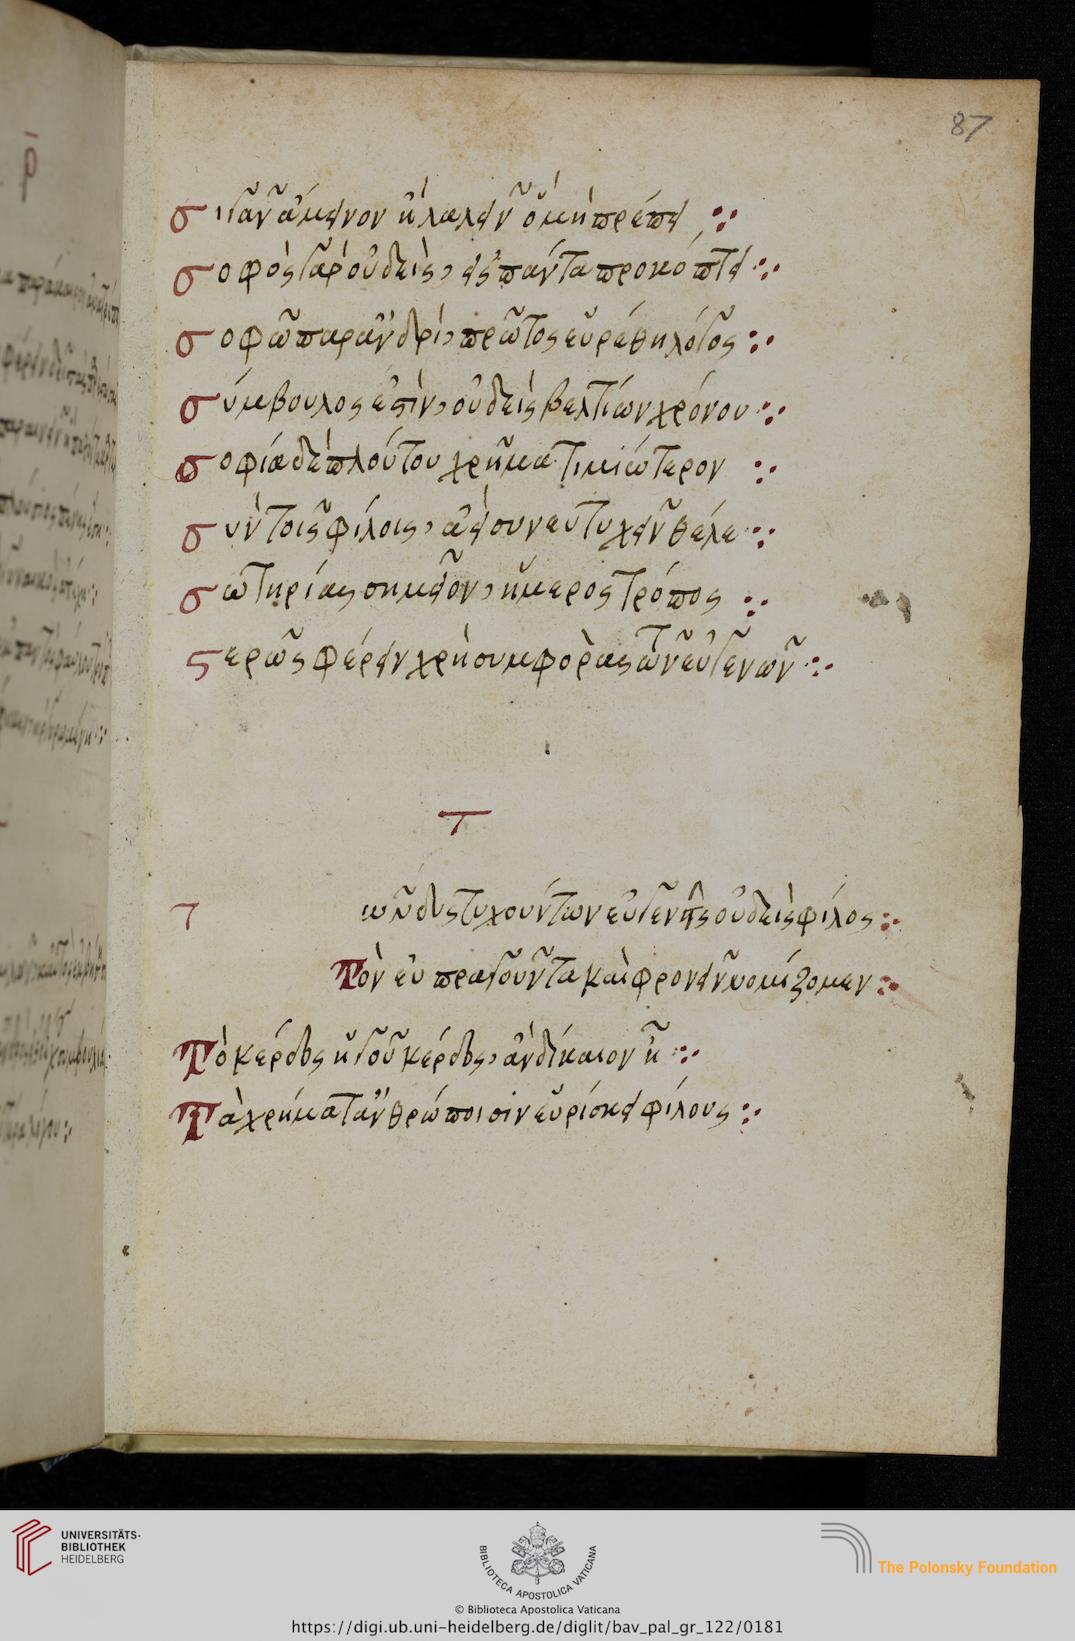 87
σιγᾶν ἄμεινον ἢ λαλεῖν ὃ μὴ πρέπει
σοφὸς γὰρ οὐδεὶς, εἰς πάντα προκόπτει
σοφῶ παρ ἀνδρὶ, πρῶτος εὑρέθη λόγος
σύμβουλος ἐστὶν, οὐδεὶς βελτίων χρόνου
σοφία δὲ πλούτου χρῆμα τιμιώτερον
σὺν τοῖς φίλοις, ἀεὶ συνευτυχεῖν θέλε
σωτηρίας σημεῖον, ἥμερος τρόπος
στερρῶς φέρειν χρὴ συμφορὰς τῶν εὐγενῶν
τ
τ ῶν δυστυχούντων εὐγενὴς οὐδεὶς φίλος
Τὸν εὐ πραγοῦντα καὶ φρονεῖν νομίζομεν
Τὸ κέρδος ἡγοῦ κέρδος, ἂν δίκαιον ἦ
Τὰ χρήματ ἀνθρώποισιν εὑρίσκει φίλους
UNIVERSITÄTS-
BIBLIOTHEK
HEIDELBERG
BIBLIOTECA APOSTOLICA VATICANA
The Polonsky Foundation
© Biblioteca Apostolica Vaticana
https://digi.ub.uni-heidelberg.de/diglit/bav_pal_gr_122/0181